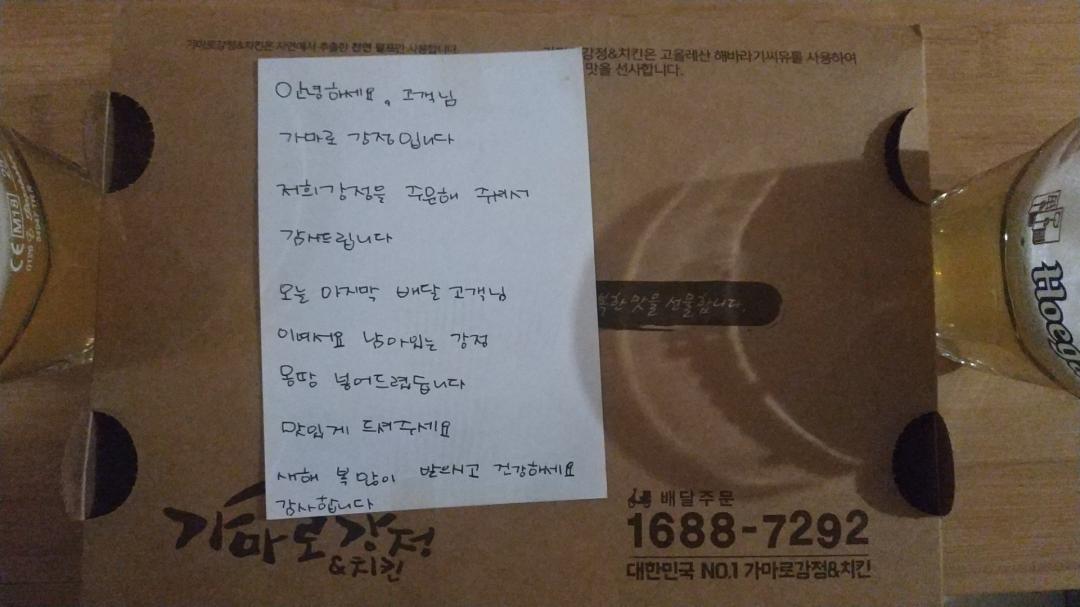 가마로강정&치킨은 자연에서 추출한 천연 펄프만 사용합니다.
강정&치킨은 고올레산 해바라기씨유를 사용하여
맛을 선사합니다.
안녕하세요. 고객님
가마로 강정입니다
저희강정을 주문해 주셔서
감사드립니다
오늘 마지막 배달 고객님
이셔서요 남아있는 강정
몽땅 넣어드렸습니다
맛있게 드셔주세요
새해 복 많이 받으시고 건강하세요
감사합니다
복한 맛을 선물합니다.
가마로강정
&치킨
배달주문
1688-7292
대한민국 NO.1 가마로강정&치킨
CE M18
0126
Hoega